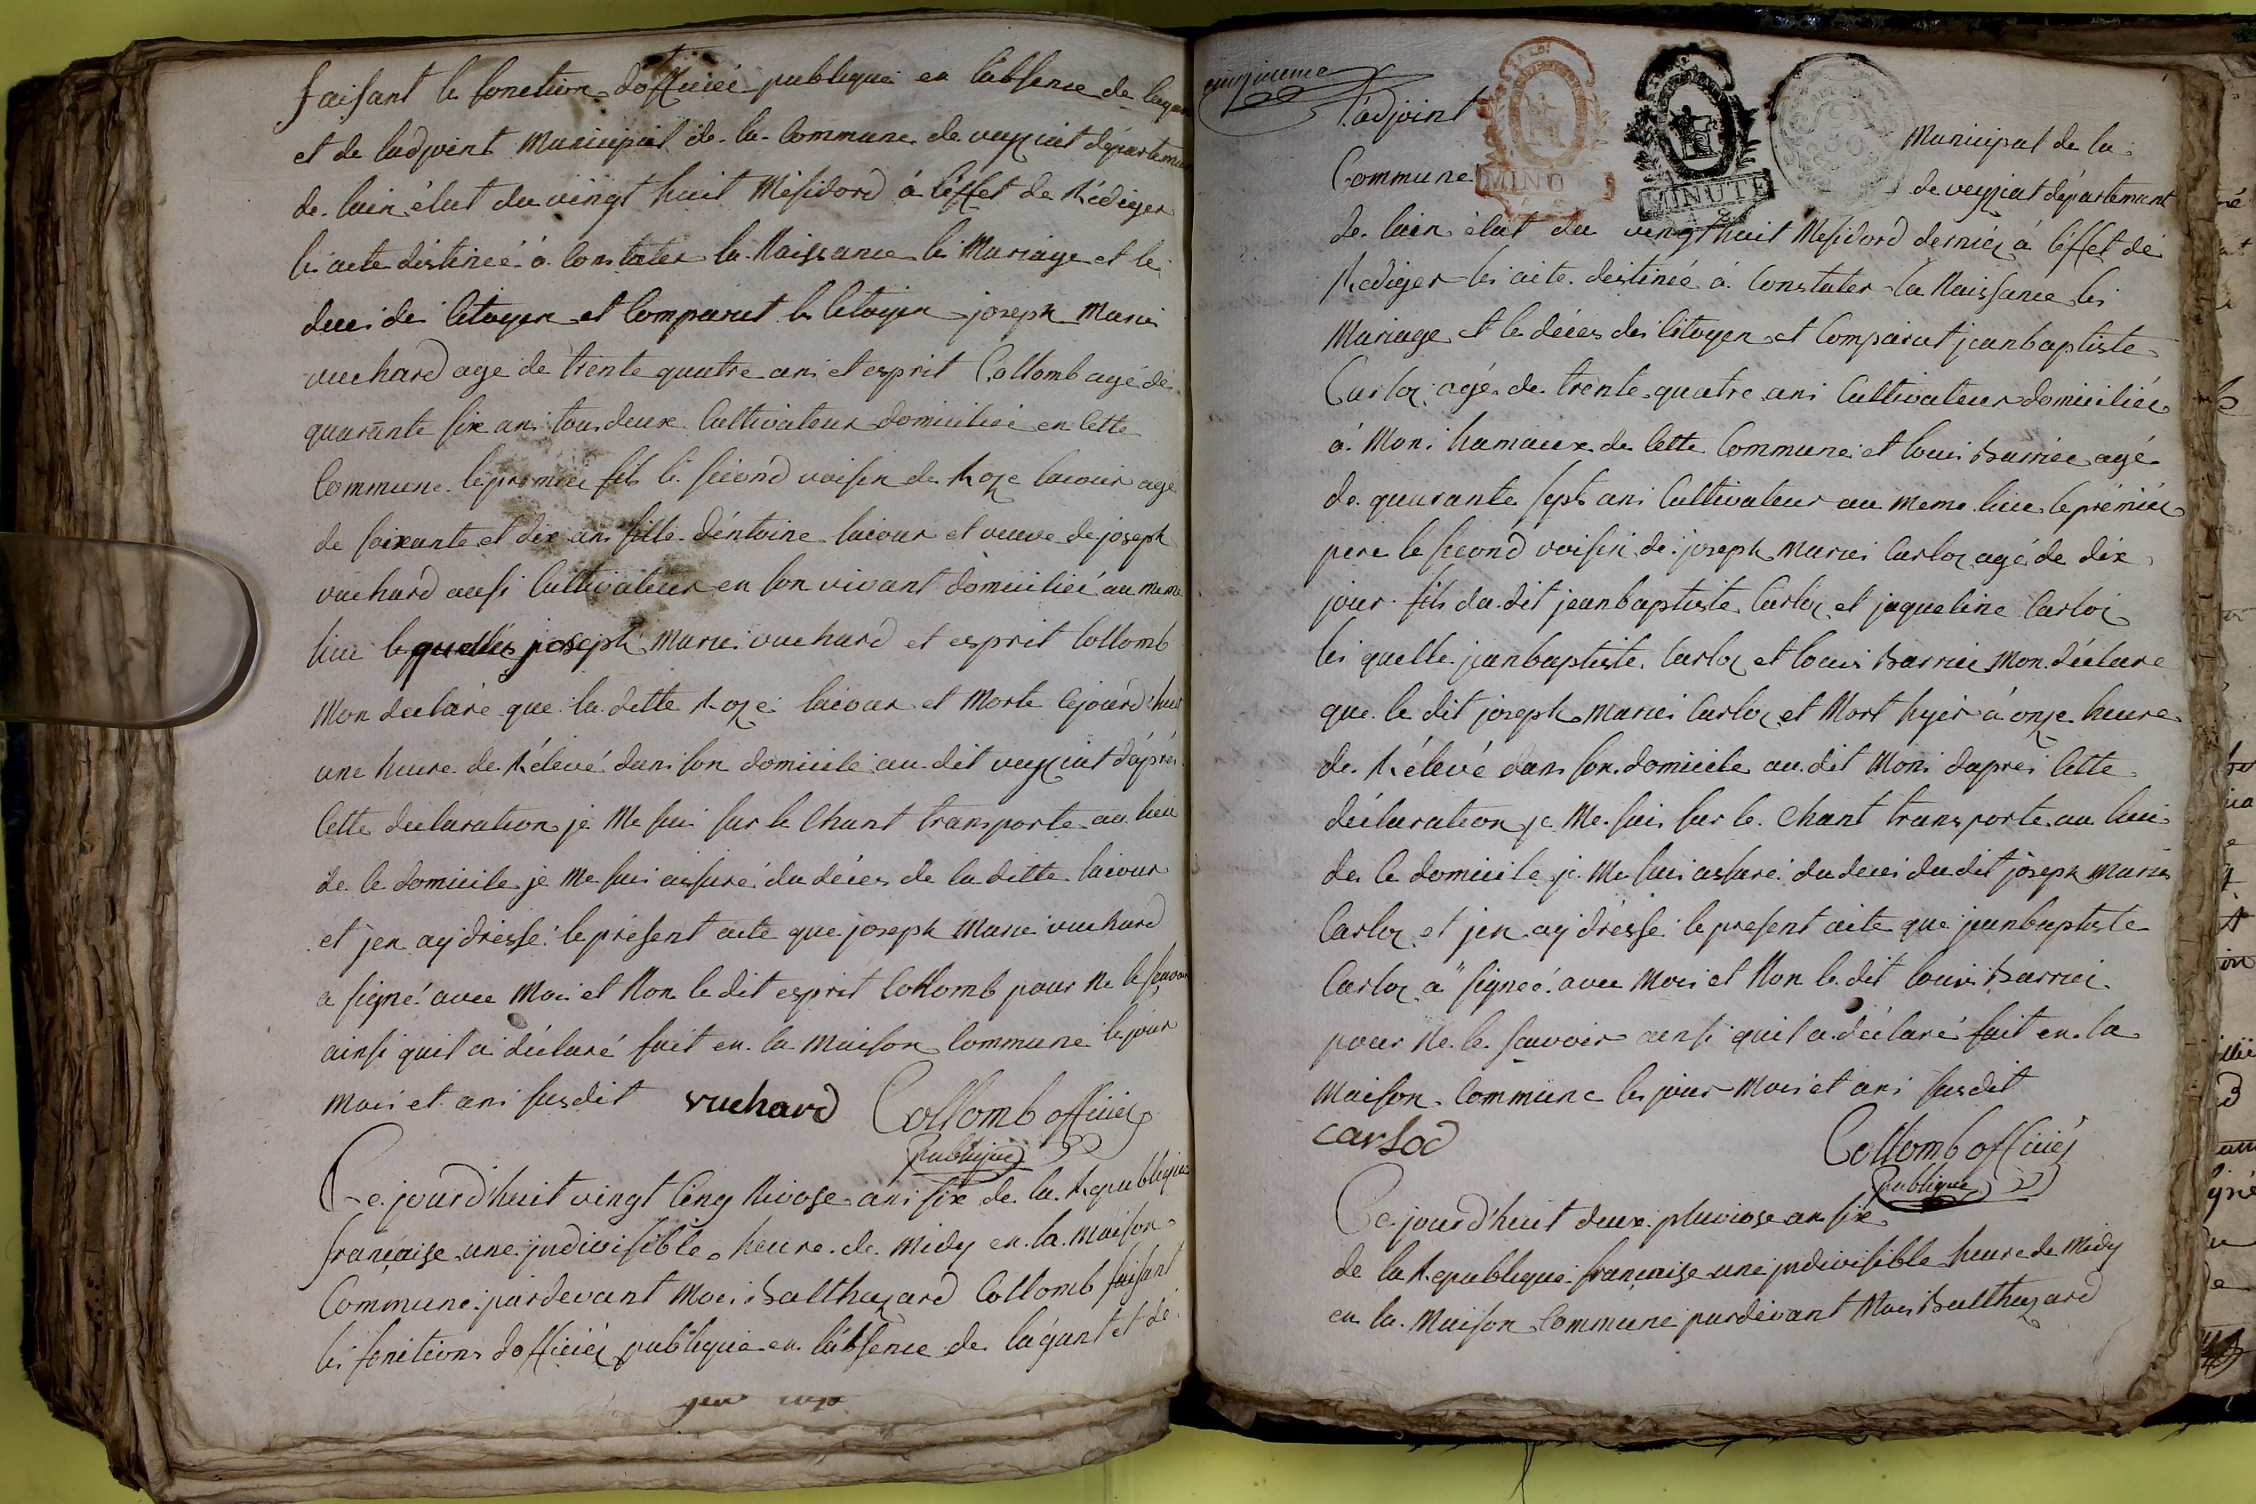 faisant les fonction dofficiéé publique en l'absence de lagant
et de ladjoint Municipal de la Commune de veyziat départemen
de lain élut du vingt huit Mésidord à l'éffet de Rédiger
les acte déstineé à Constater la Naissance les Mariage et le
deces des Citoyen et Comparut les Citoyen joseph Marie
vuchard age de trente quatre ans et esprit Collomb agé dé
quarante six ans tous deux Cultivateur domicilieé en Cette
Commune le prémiér fils le sécond voisin de Roze lacour agé
de soixante et dix ans fille déntoine lacour et veuve de joseph
vuchard aussi Cultivateur en son vivant domicilieé au meme
lieu lequelles joseph Marie vuchard et esprit Collomb
Mon declaré que la ditte Roze lacour et Morte Cejourd'huit
une heure de Rélevé dans son domicile au dit veyziat d'après
Cette declaration je Me sui sur le Chant transporte au lieu
de Ce domicile je Me sui assuré du décès de la ditte lacour
et jen ay dréssé le présent acte que joseph Marie vuchard
a signé avec Moi et Non le dit esprit Collomb pour Ne le savoir
ainsi quil a déclaré fait en la Maison Commune le jour
Mois et ans susdit vuchard Collomb officiér
publique
Ce jourd'huit vingt Cinq Nivose ans six de la Republique
française une jndivisible heure de Midy en la Maison
Commune pardevant Moi Balthazard Collomb faisant
les fonctions dofficiér publique en l'absence de lagant et dé
cinquieme
l'adjoint Municipal de la
Commune de veyziat département
MINUTE
MINUTE
de lain élut du vingt huit Mésidord dernier à l'éffet dé
Rediger les acte destineé à Constater la Naissance les
Mariage et le décès des Citoyen et Comparut jeanbaptiste
Carloz agé de trente quatre ans Cultivateur domiciliér
à Mons hamaux de Cette Commune et louis Barrieé agé
de quarante sept ans Cultivateur au meme lieu le prémiér
pere le sécond voisin de joseph Marie Carloz agé de dix
jour fils du dit jeanbaptiste Carloz et jaqueline Carloz
les quelle jeanbaptiste Carloz et louis Barrieé Mon déclare
que le dit joseph Marie Carloz et Mort hyér à onze heure
de Rélevé dans son domicile au dit Mons daprès Cette
déclaration je Me suis sur le Chant transporte au lieu
de Ce domicile je Me sui assuré du deces du dit joseph Marie
Carloz et jen ay dréssé le present acte que jeanbaptiste
Carloz a signeé avec Moi et Non le dit louis Barrieé
pour Ne le sauvoir ainsi quil a déclaré fait en la
Maison Commune les jour Mois et ans susdit
carlod Collomb officiér
publique
Ce jourd'huit deux pluviose an six
de la Republique française une jndivisible heure de Midy
en la Maison Commune pardevant Moi Balthazard